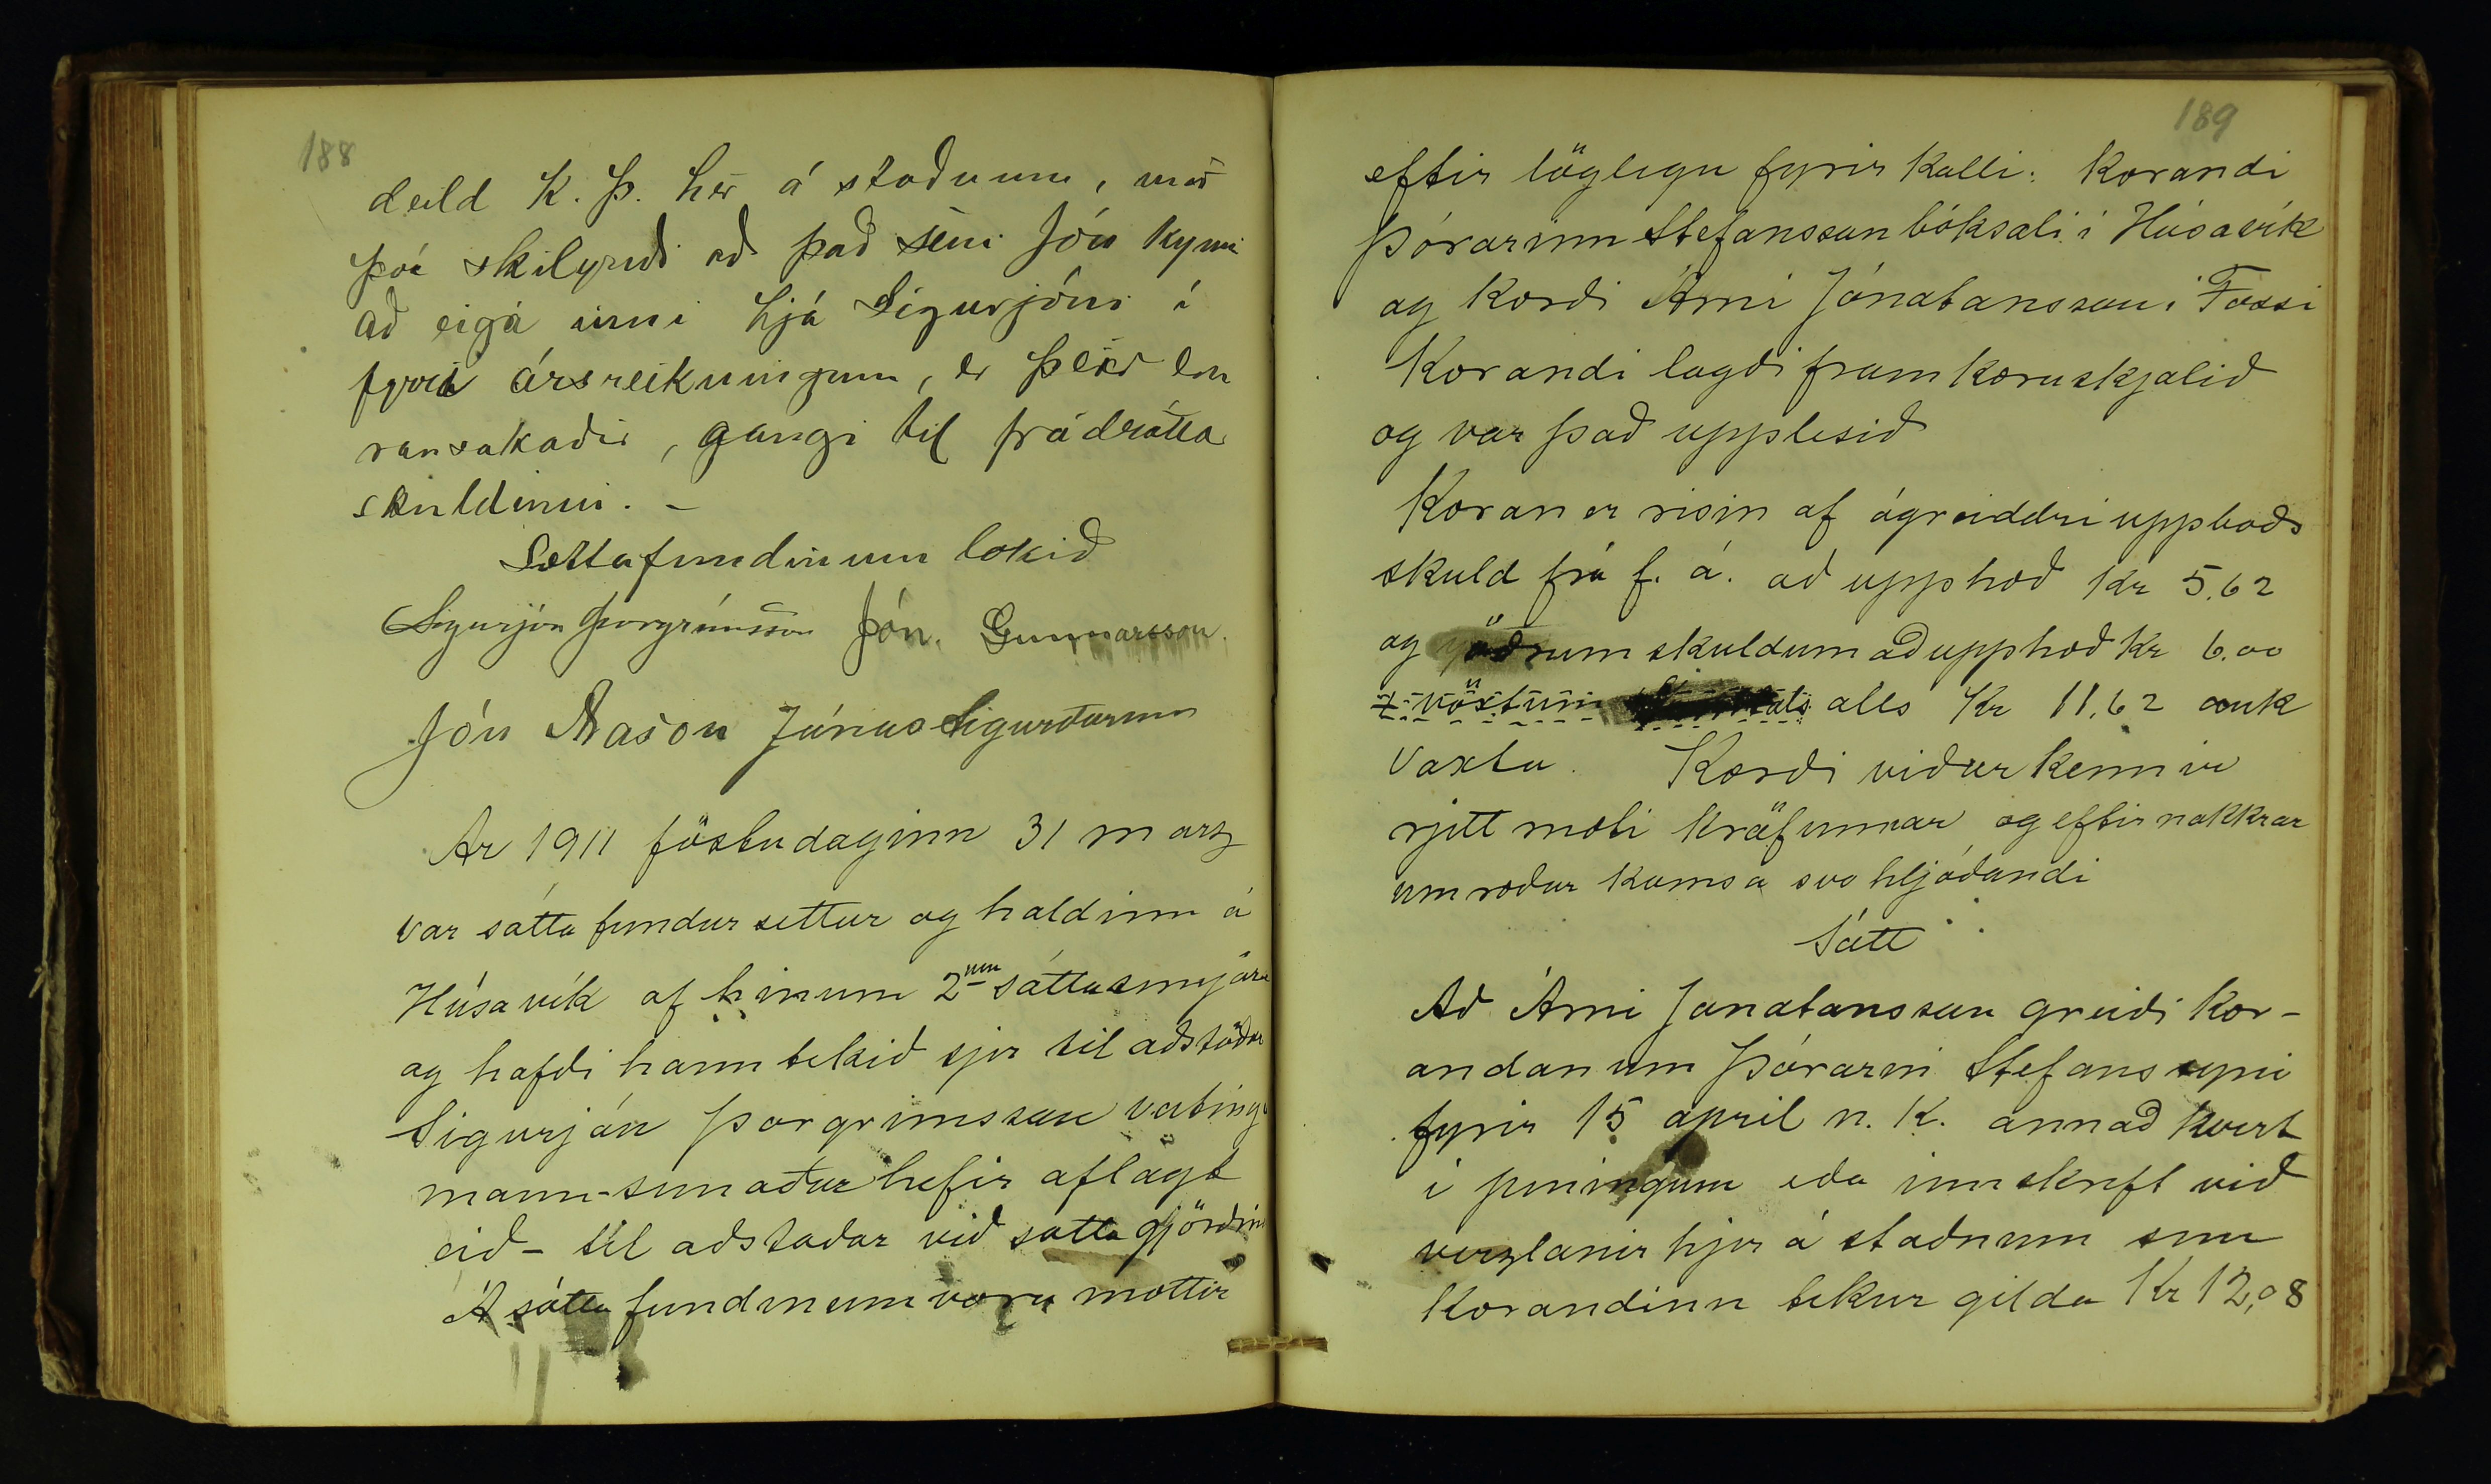 188
deild K. Þ. hér á staðnum, með
því skilyrði að það sem Jón kynni
að eiga inni hjá Sigurjóni í
fyrri ársreikningum, er þeir en
ransakaðir, gangi til frádráttar
skuldinni. –
Sáttafundinum lokið
Sigurjón Þorgrímsson Jón. Gunnarsson.
Jón Arason Júníus Sigurðsson
Ár 1911 föstudaginn 31 marz
var sátta fundur settur og haldinn á
Húsavík af hinum 2num sáttasemjara
og hafði hann tekið sjer til aðstoðar
Sigurján Þorgrimsson verting
mann-sem aður hefir aflagt
eið – til aðstoðar við sátta gjörðin
Á sátta fundinum voru mættir
189
eftir löglegu fyrir kalli: Kærandi
Þórarinn Stefansson bóksali í Húsavík
og kærði Árni Jónatansson í Fossi
Kærandi lagði fram kæruskjalið
og var það upplesið
Kæran er risin af ógreiddri uppboðs
skuld frá f. á. að upphæð Kr 5.62
og öðrum skuldum að upphæð Kr 6.00
+ vöxtum alls Kr 11.62 auk
vaxta. Kærði viðurkennir
rjett mæti kröfunnar og eftir nokkrar
umræður komsa svo hljóðandi
Sátt
Að Árni Jonatansson greiði Kær-
andanum Þórarni Stefanssyni
fyrir 15 april n. k. annað hvert
í peningum eða innskrift við
verzlanir hjer á staðnum sem
Kærandinn tekur gilda Kr 12,08